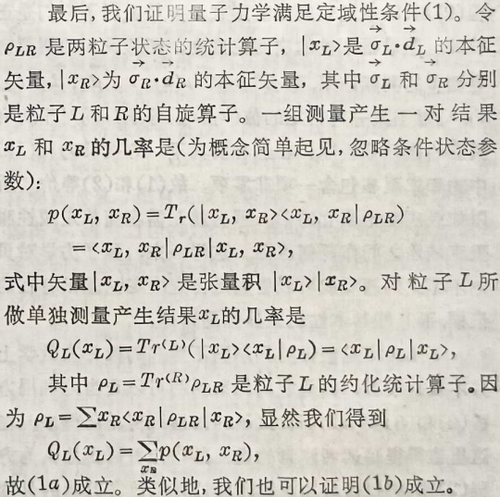 最后，我们证明量子力学满足定域性条件(1)。令
ρ_LR 是两粒子状态的统计算子，|x_L>是 σ⃗_L·d⃗_L 的本征
矢量，|x_R>为 σ⃗_R·d⃗_R 的本征矢量，其中 σ⃗_L 和 σ⃗_R 分别
是粒子L和R的自旋算子。一组测量产生一对结果
x_L 和 x_R 的几率是(为概念简单起见，忽略条件状态参
数)：
p(x_L, x_R)=T_r(|x_L, x_R><x_L, x_R|ρ_LR)
=<x_L, x_R|ρ_LR|x_L, x_R>,
式中矢量|x_L, x_R> 是张量积 |x_L>|x_R>。对粒子L所
做单独测量产生结果x_L的几率是
Q_L(x_L)=Tr^(L)(|x_L><x_L|ρ_L)=<x_L|ρ_L|x_L>,
其中 ρ_L=Tr^(R)ρ_LR 是粒子L的约化统计算子。因
为 ρ_L=∑x_R<x_R|ρ_LR|x_R>, 显然我们得到
Q_L(x_L)=∑_{x_R}p(x_L, x_R),
故(1a)成立。类似地，我们也可以证明(1b)成立。